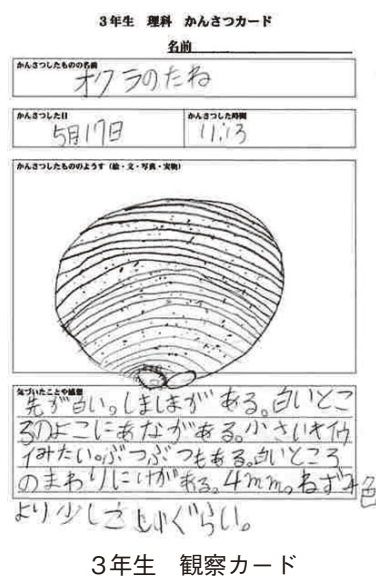 3年生 理科 かんさつカード
名前
かんさつしたものの名前
オクラのたね
かんさつした日
かんさつした時間
5月17日
11:13
かんさつしたもののようす（絵・文・写真・実物）
気づいたことや感想
先が白い。しましまがある。白いとこ
ろのよこにあながある。小さいキイウ
イみたい。ぶつぶつもある。白いところ
のまわりにけがある。4mm。ねずみ色
より少し ぐらい。
3年生 観察カード